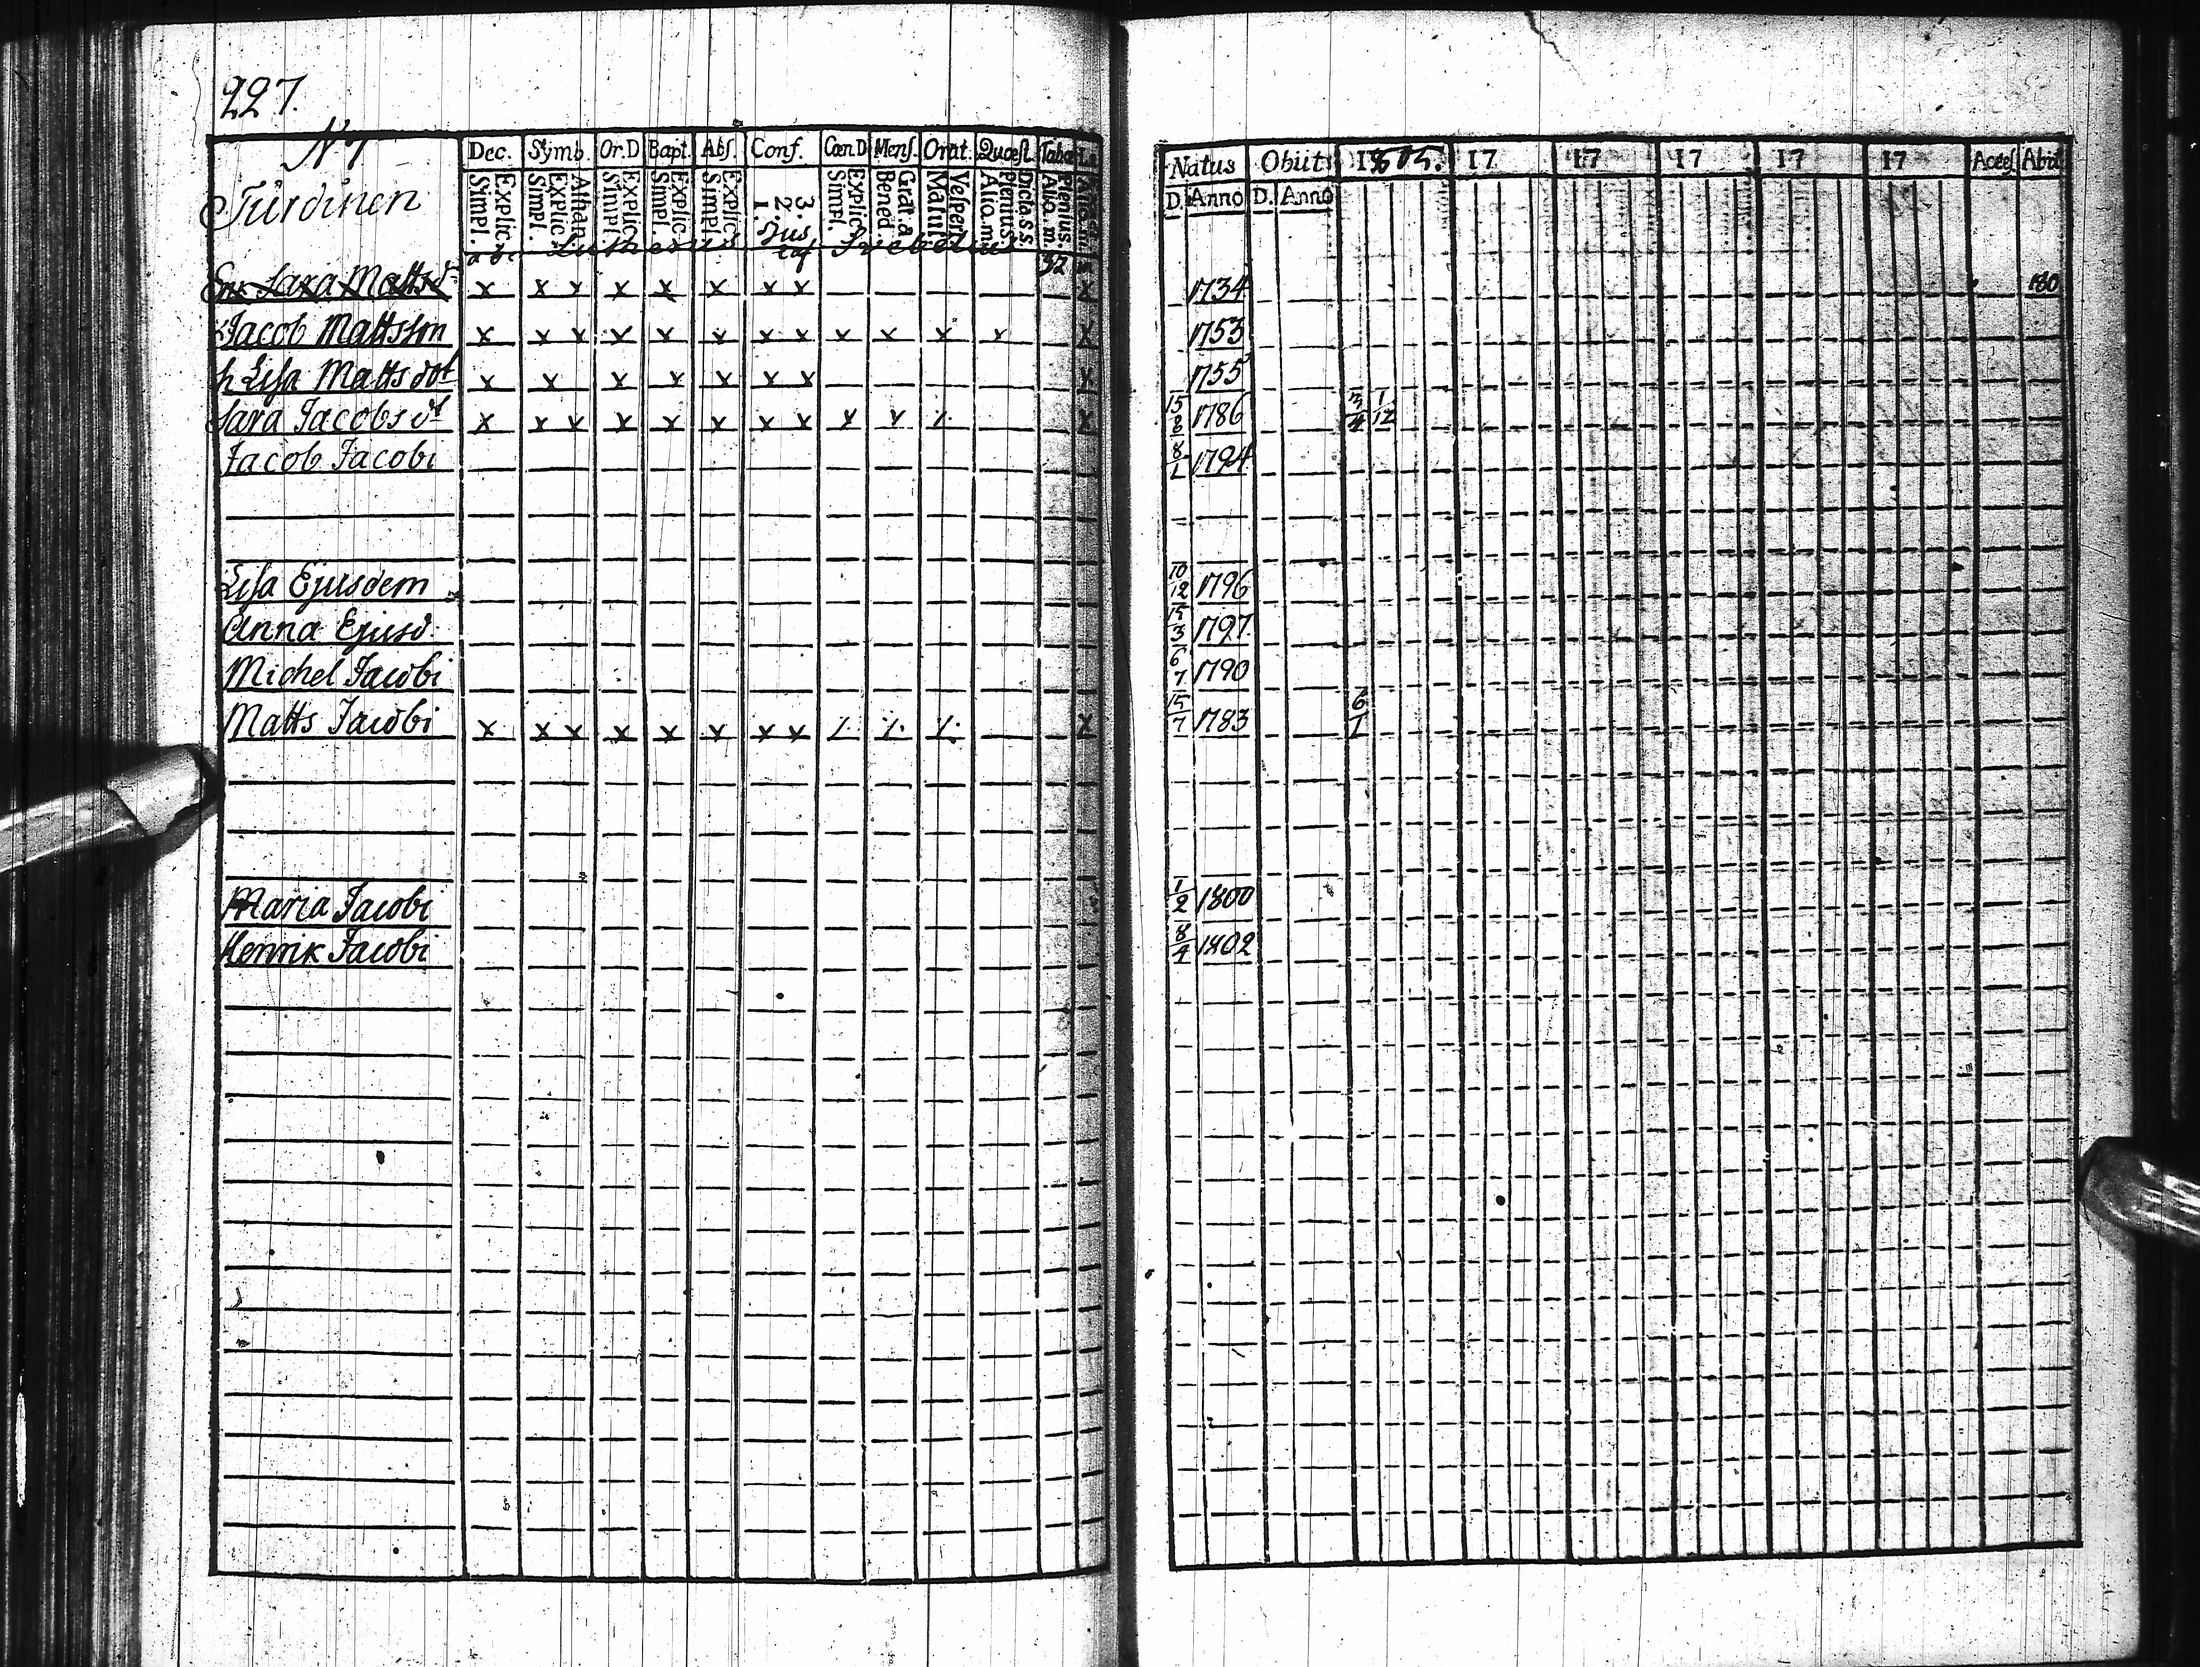 227.
N 7
Dec. Symb. Or.D Bapt. Abs. Conf. Cœn.D Mens. Orat. Quæst. Taba
Explic. Simpl. Athan. Explic. Simpl. Explic. Simpl. Explic. Simpl. Explic. Simpl. 3. 2. 1. Explic. Simpl. Grat. a. Bened. Vespert. Matut. Dicta. s.s. Plenius. Alio. m. Plenius. Alio. m.
Natus Obiit 1805. 17 17 17 17 17 Acces Abit
D. Anno D. Anno
Turdinen
a b c Lutherus Svebelius 32
Enk Sara Matts d. x x x x x x x x x 1734 180
Jacob Mattsson x x x x x x x x x x x x x 1753
h Lisa Matts dot x x x x x x x x 1755
Sara Jacobs dt x x x x x x x x x x x x 15 8 1786 3/4 1/12
Jacob Jacobi 8/1 1794
Lisa Ejusdem 10/12 1796
Anna Ejusd. 15/3 1797.
Michel Jacobi 6/7 1790
Matts Jacobi x x x x x x x x x 15/7 1783 6/1
Maria Jacobi 1/2 1800
Henrik Jacobi 8/4 1802